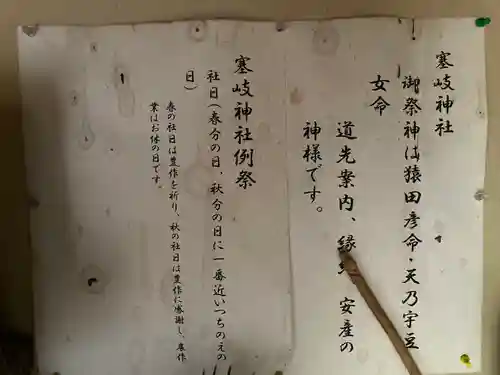 塞岐神社
御祭神は猿田彦命・天乃宇豆
女命
道先案内、縁 安産の
神様です。
塞岐神社例祭
社日(春分の日、秋分の日に一番近いつちのえの
日)
春の社日は豊作を祈り、秋の社日は豊作に感謝し、農作
業はお休の日です。